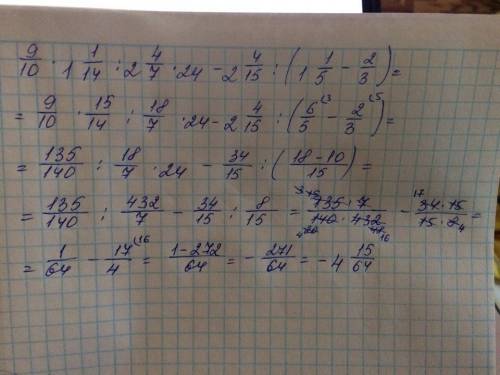 9/10 · 1 1/14 : 2 4/7 · 24 - 2 4/15 : (1 1/5 - 2/3) =
= 9/10 · 15/14 : 18/7 · 24 - 2 4/15 : (6/5 (3 - 2/3 (5) =
= 135/140 : 18/7 · 24 - 34/15 : (18-10/15) =
= 135/140 : 432/7 - 34/15 : 8/15 = 135·7/140·432 - 34·15/15·8 =
= 1/64 - 17/4 (16 = 1-272/64 = - 271/64 = - 4 15/64